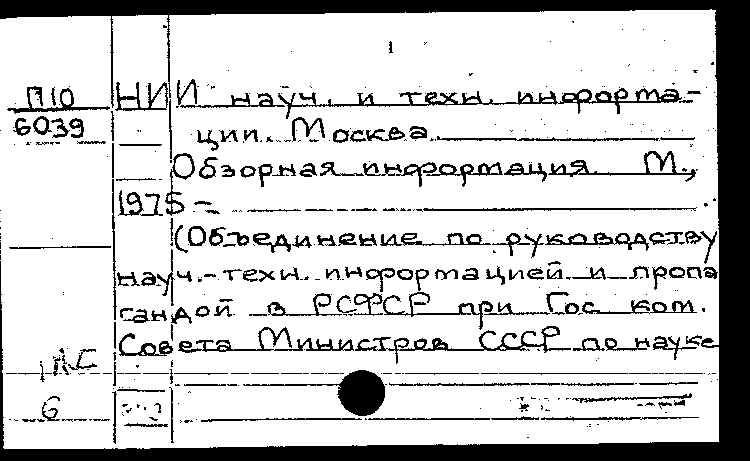 П10
6039
НИИ науч. и техн. информа-
ции. Москва.
Обзорная информация. М.,
1975 -
(Объединение по руководству
науч.-техн. информацией и пропа
гандой в РСФСР при Гос ком.
Совета Министров СССР по науке
6